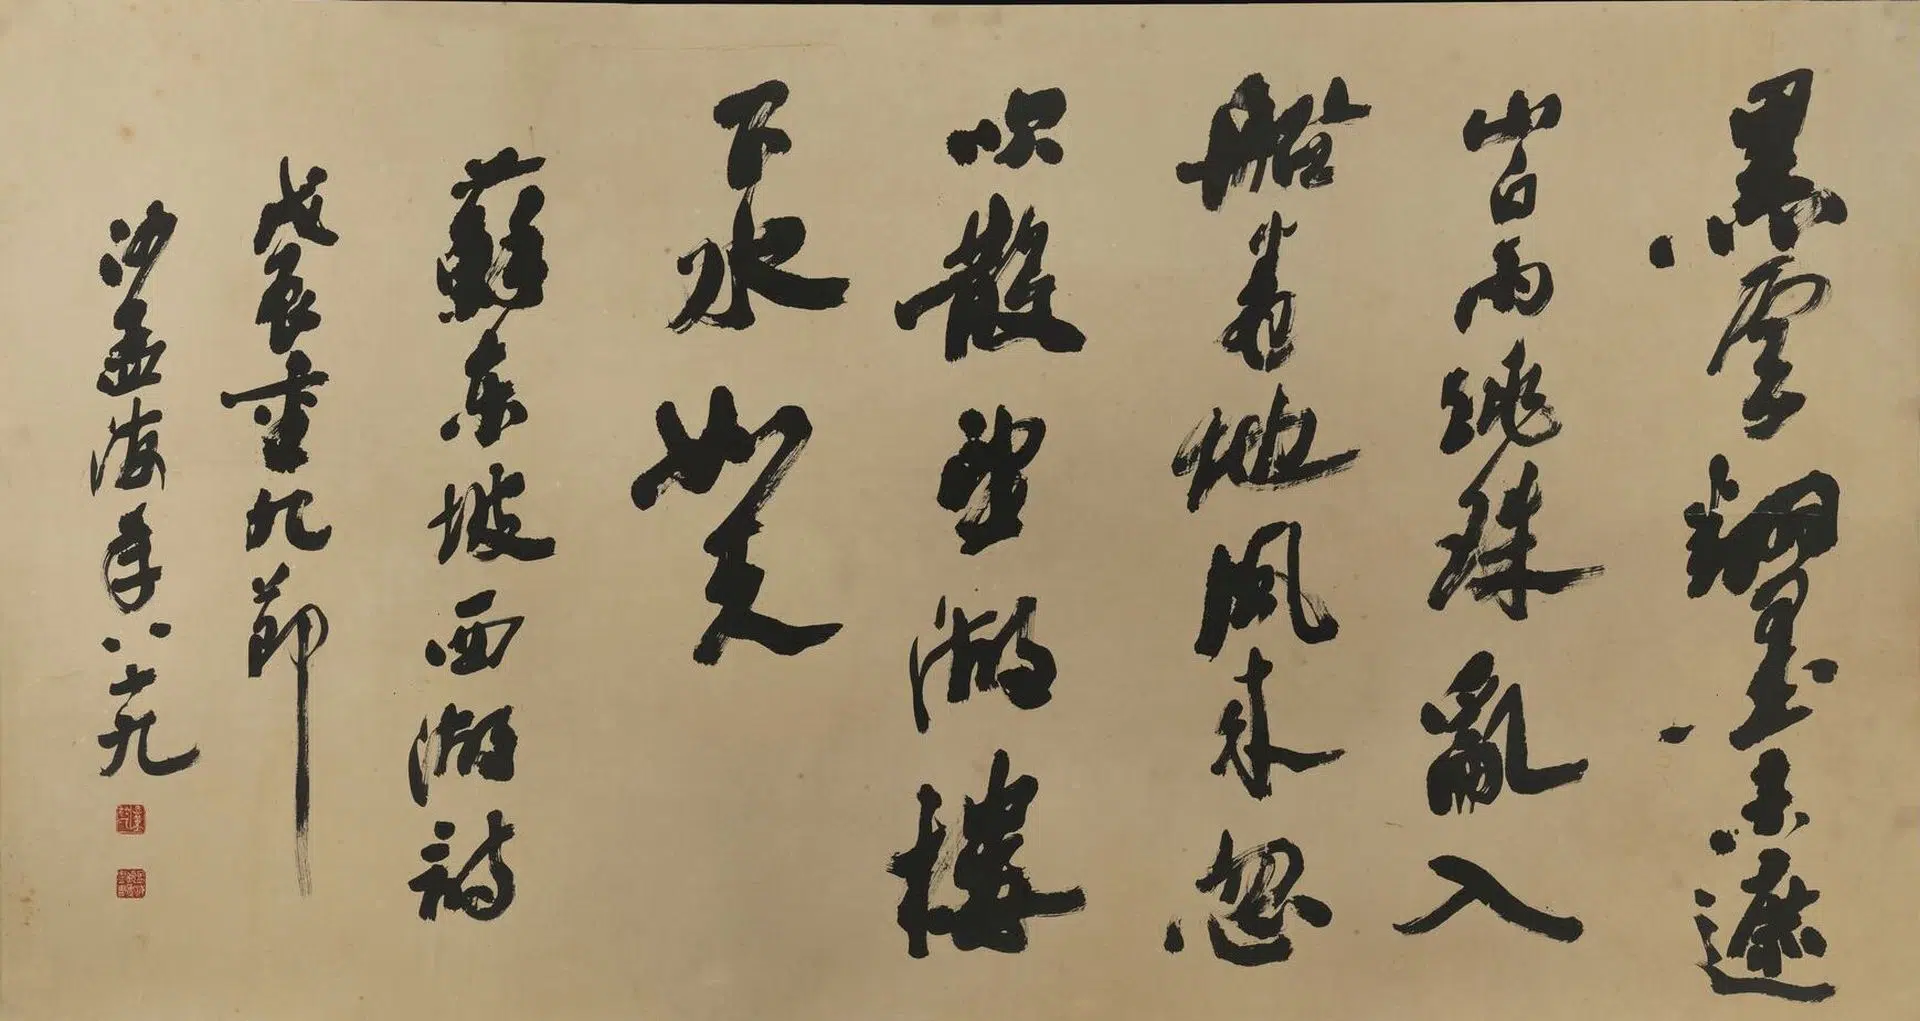 黑雲翻墨未遮
山白雨跳珠亂入
船卷地風來忽
吹散望湖樓
下水如天
蘇東坡西湖詩
戊辰重九節
沙孟海年八十九